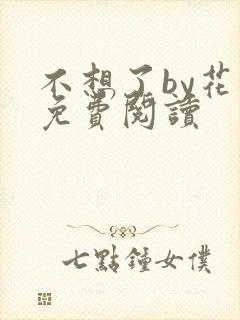 不想了by花
免費閱讀
七點鐘女僕